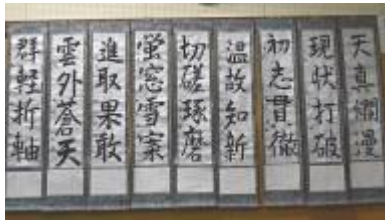 天真爛漫
現状打破
初志貫徹
温故知新
切磋琢磨
蛍窓雪案
進取果敢
雲外蒼天
群軽折軸